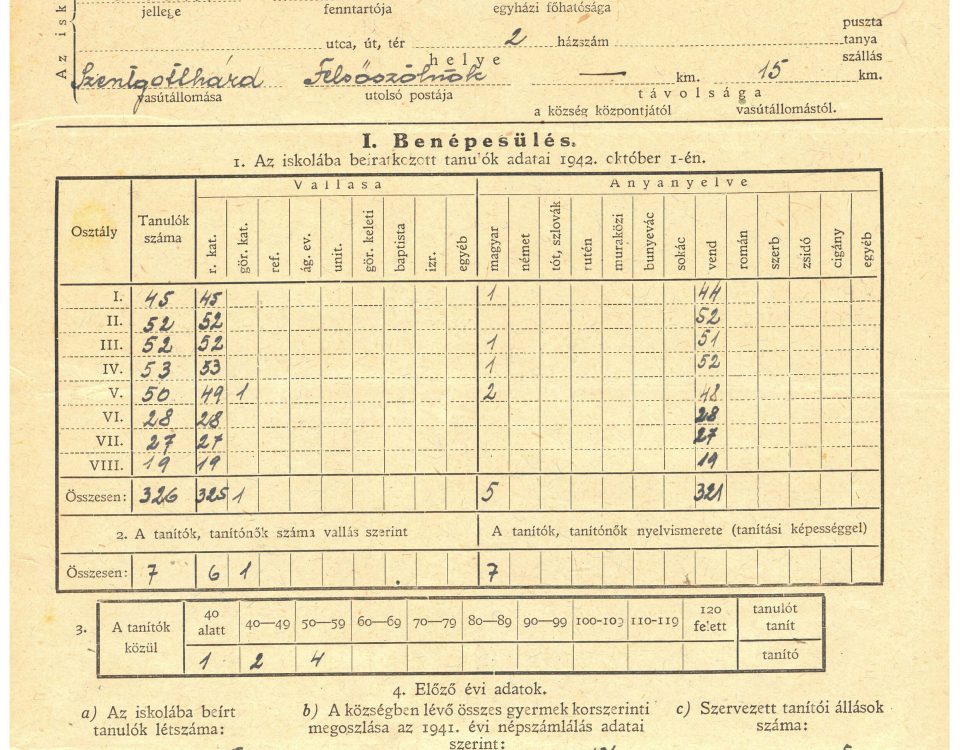 Az isk
jellege fenntartója egyházi főhatósága
puszta
utca, út, tér 2 házszám tanya
helye szállás
Szentgotthárd Felsőszölnök — km. 15 km.
vasútállomása utolsó postája távolsága
a község központjától vasútállomástól.
I. Benépesülés.
1. Az iskolába beiratkozott tanulók adatai 1942. október 1-én.
Osztály Tanulók száma Vallása Anyanyelve
r. kat. gör. kat. ref. ág. ev. unit. gör. keleti baptista izr. egyéb magyar német tót, szlovák rutén muraközi bunyevác sokác vend román szerb zsidó cigány egyéb
I. 45 45 1 44
II. 52 52 52
III. 52 52 1 51
IV. 53 53 1 52
V. 50 49 1 2 48
VI. 28 28 28
VII. 27 27 27
VIII. 19 19 19
Összesen: 326 325 1 5 321
2. A tanítók, tanítónők száma vallás szerint A tanítók, tanítónők nyelvismerete (tanítási képességgel)
Összesen: 7 6 1 7
3. A tanítók közül 40 alatt 40—49 50—59 60—69 70—79 80—89 90—99 100-109 110-119 120 felett tanulót tanít
1 2 4 tanító
4. Előző évi adatok.
a) Az iskolába beírt b) A községben lévő összes gyermek korszerinti c) Szervezett tanítói állások
tanulók létszáma: megoszlása az 1941. évi népszámlálás adatai száma:
szerint: